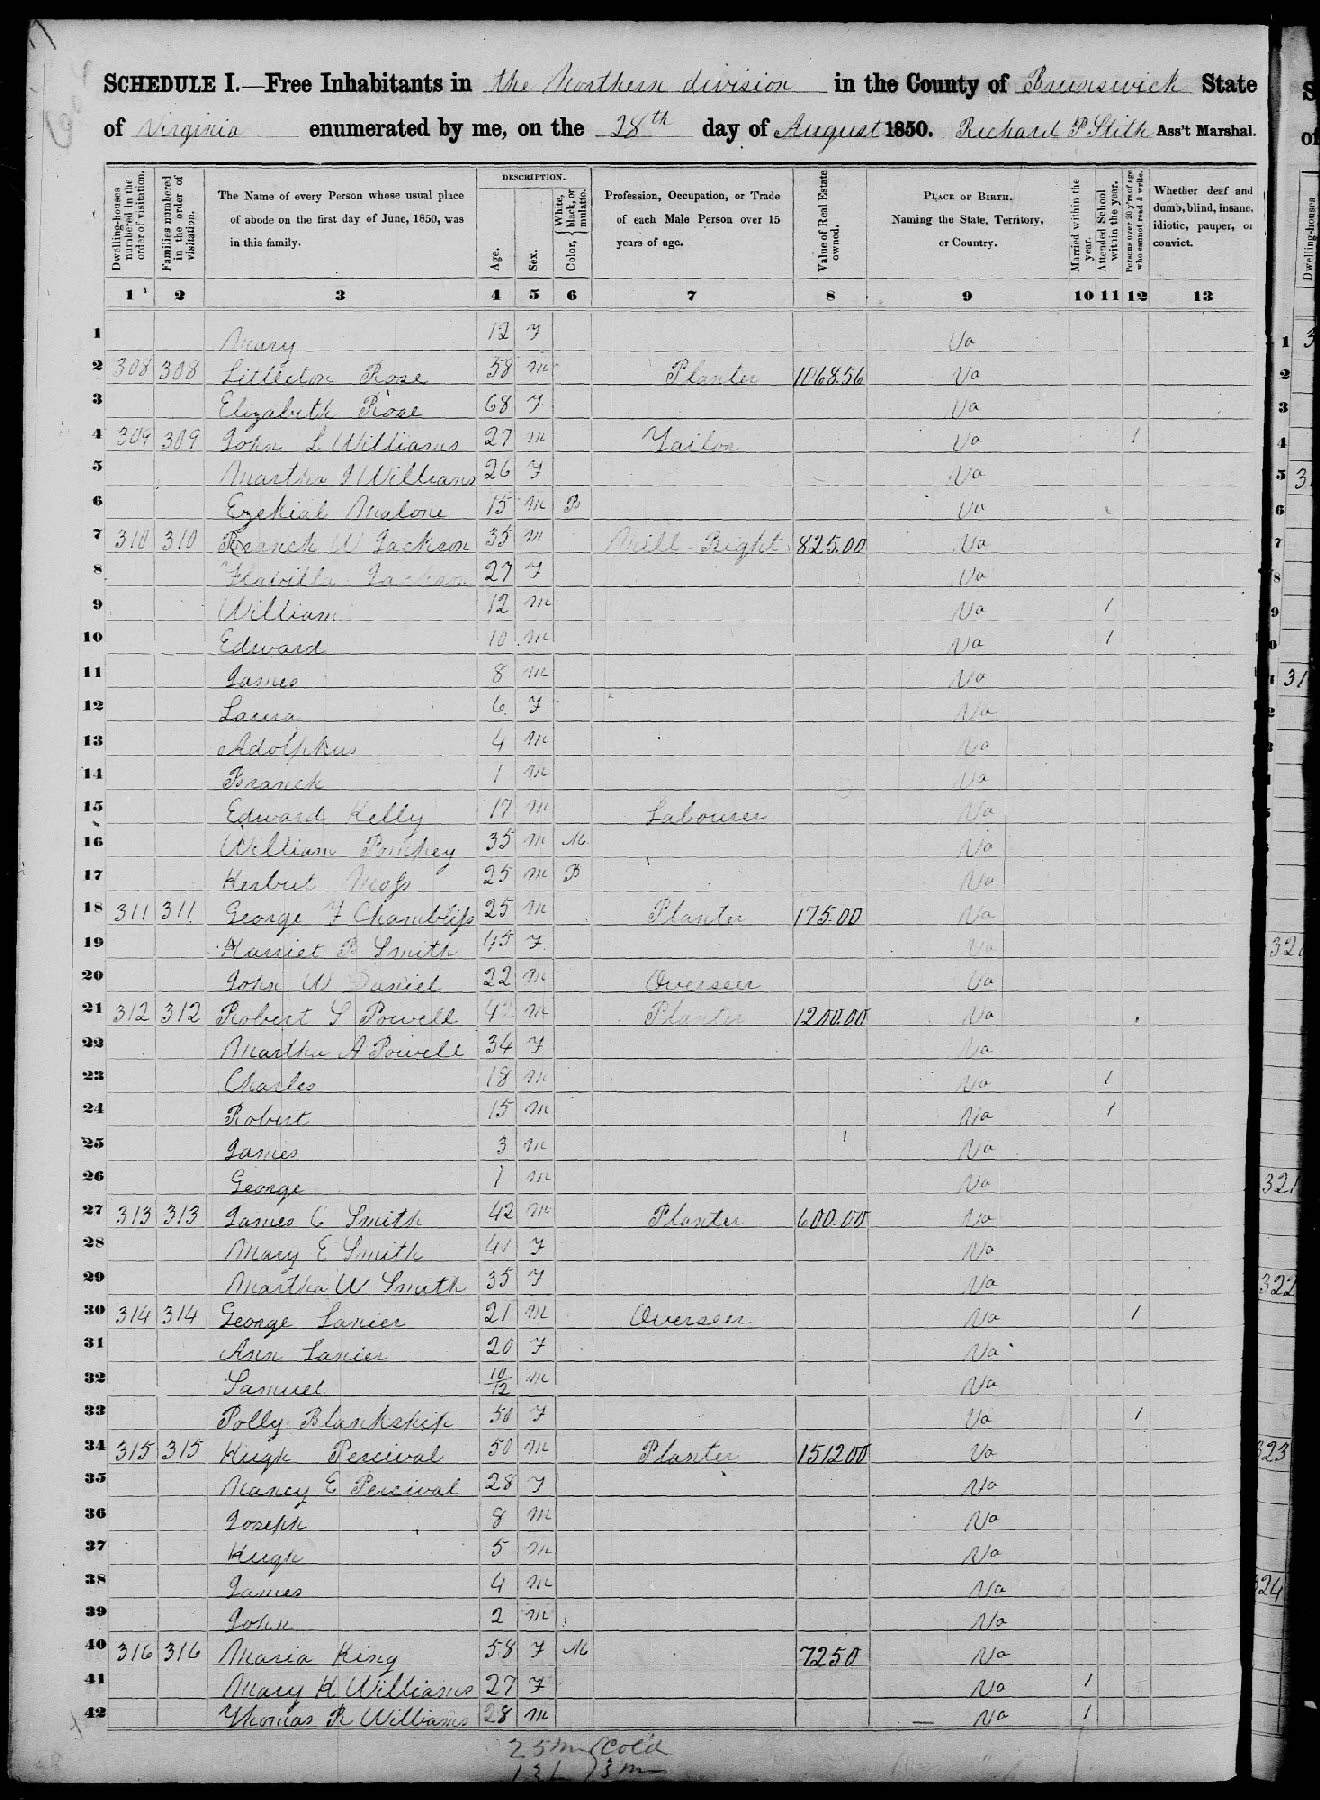 SCHEDULE I.—Free Inhabitants in the Northern division in the County of Brunswick State
of Virginia enumerated by me, on the 28th day of August 1850. Richard P Stith Ass't Marshal.
Dwelling-houses numbered in the order of visitation.
Families numbered in the order of visitation.
The Name of every Person whose usual place of abode on the first day of June, 1850, was in this family.
DESCRIPTION.
Age.
Sex.
Color, { White, black, or mulatto.
Profession, Occupation, or Trade of each Male Person over 15 years of age.
Value of Real Estate owned.
PLACE OF BIRTH. Naming the State, Territory, or Country.
Married within the year.
Attended School within the year.
Persons over 20 y'rs of age who cannot read & write.
Whether deaf and dumb, blind, insane, idiotic, pauper, or convict.
1 2 3 4 5 6 7 8 9 10 11 12 13
1 Mary 12 F Va
2 308 308 Littleton Rose 58 M Planter 1068.56 Va
3 Elizabeth Rose 68 F Va
4 309 309 John L Williams 27 M Tailor Va 1
5 Martha J Williams 26 F Va
6 Ezekial Malone 15 M B Va
7 310 310 Branch W Jackson 35 M Mill-Right 825.00 Va
8 Flavilla Jackson 27 F Va
9 William 12 M Va 1
10 Edward 10 M Va 1
11 James 8 M Va
12 Laura 6 F Va
13 Adolphus 4 M Va
14 Branch 1 M Va
15 Edward Kelly 17 M Labourer Va
16 William Pompey 35 M M Va
17 Herbert Moss 25 M B Va
18 311 311 George F Chambliss 25 M Planter 175.00 Va
19 Harriet B Smith 45 F Va
20 John W Daniel 22 M Overseer Va
21 312 312 Robert S Powell 42 M Planter 1200.00 Va
22 Martha A Powell 34 F Va
23 Charles 18 M Va 1
24 Robert 15 M Va 1
25 James 3 M Va
26 George 1 M Va
27 313 313 James C Smith 42 M Planter 600.00 Va
28 Mary E Smith 41 F Va
29 Martha W Smith 35 F Va
30 314 314 George Lanier 21 M Overseer Va 1
31 Ann Lanier 20 F Va
32 Samuel 10/12 M Va
33 Polly Blankship 50 F Va 1
34 315 315 Hugh Percival 50 M Planter 151200 Va
35 Nancy E Percival 28 F Va
36 Joseph 8 M Va
37 Hugh 5 M Va
38 James 4 M Va
39 John 2 M Va
40 316 316 Maria King 58 F M 7250 Va
41 Mary H Williams 27 F Va 1
42 Thomas R Williams 28 M Va 1
25 m Col'd
3 m